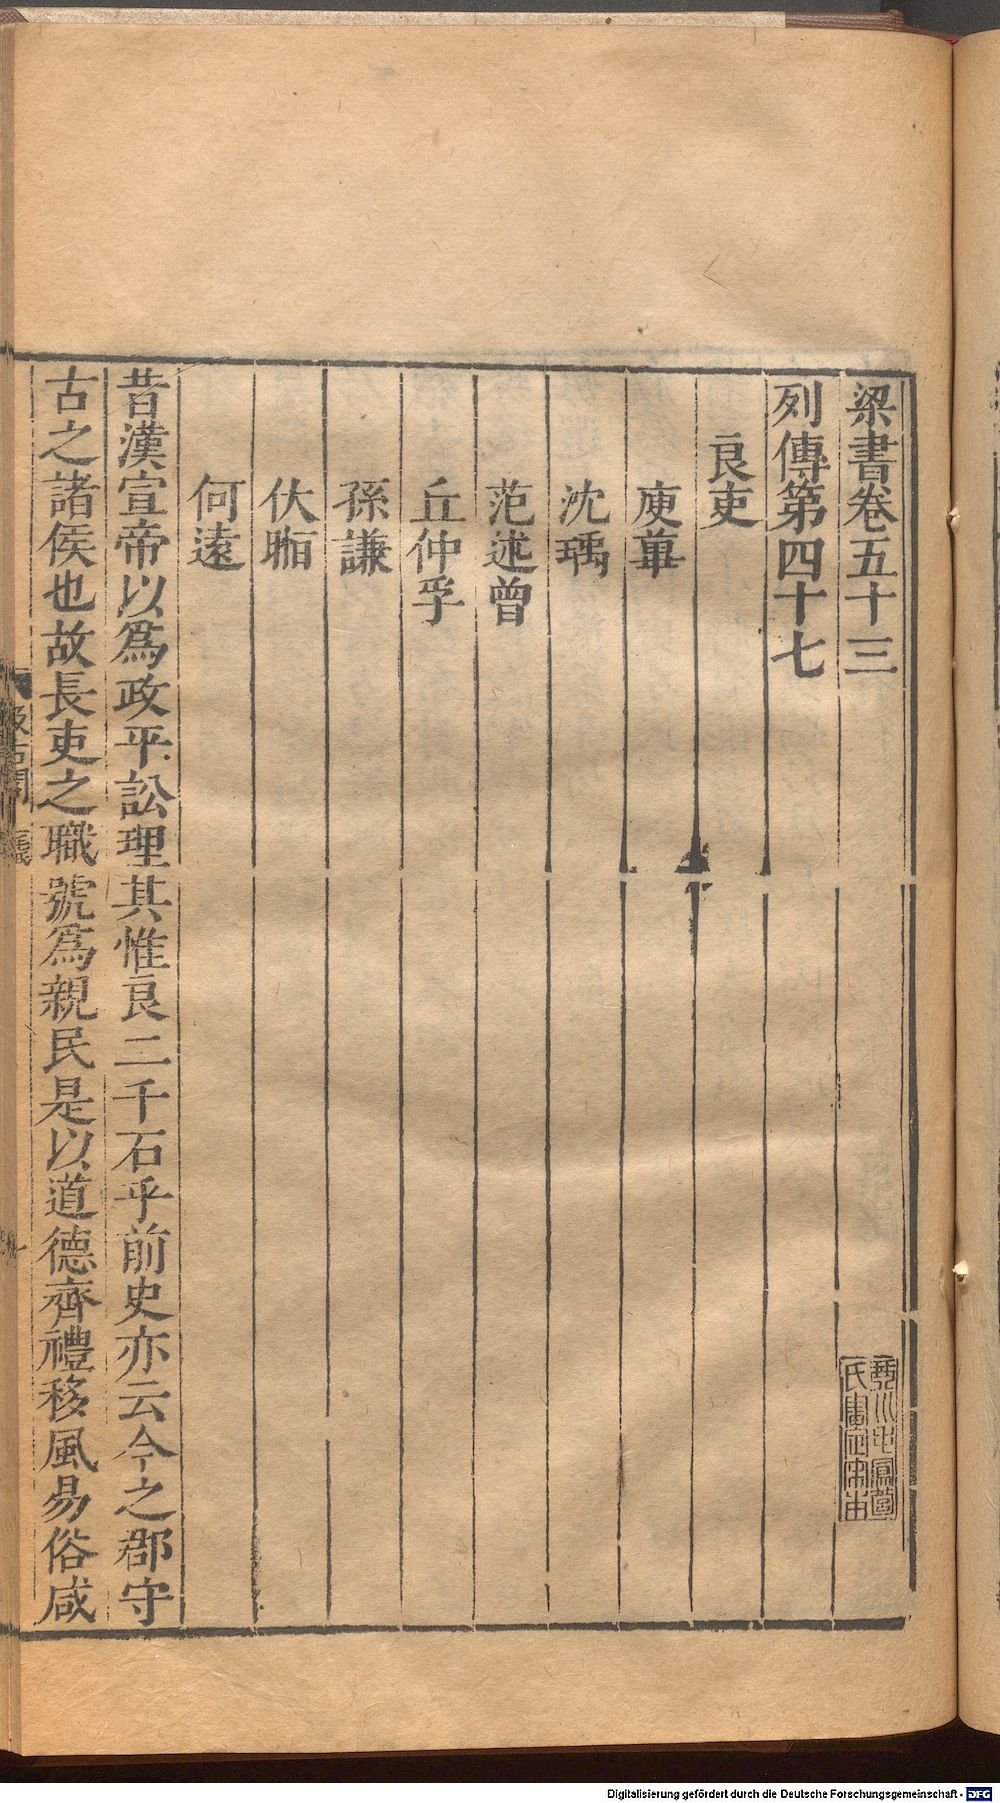 梁書卷五十三
列傳第四十七
良吏
庾蓽
沈瑀
范述曾
丘仲孚
孫謙
伏暅
何遠
昔漢宣帝以為政平訟理其惟良二千石乎前史亦云今之郡守
古之諸侯也故長吏之職號為親民是以道德齊禮移風易俗咸
汲古閣
Digitalisierung gefördert durch die Deutsche Forschungsgemeinschaft - DFG